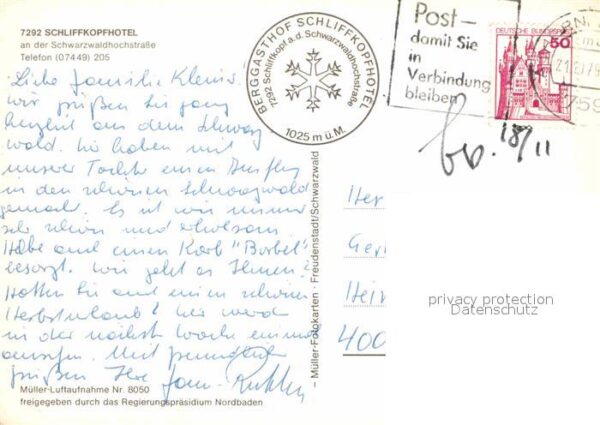 7292 SCHLIFFKOPFHOTEL
an der Schwarzwaldhochstraße
Telefon (07449) 205
BERGGASTHOF SCHLIFFKOPFHOTEL
7292 Schliffkopf a.d. Schwarzwaldhochstraße
1025 m ü.M.
Post–
damit Sie
in
Verbindung
bleiben
DEUTSCHE BUNDESPOST
50
18/11
Liebe Familie
wir grüßen Sie ganz
herzlich aus dem Schwarz
wald. Wir haben mit
unserer Tochter einen Ausflug
in den schönen Schwarzwald
gemacht. Es ist wie immer
sehr schön und erholsam
Habe auch einen Korb "Borbel"
besorgt. Wie geht es Ihnen?
Hatten Sie auch einen schönen
Herbsturlaub?
in der nächsten Woche einmal
anrufen. Mit freundlichen
Grüßen Ihre Fam.
Müller-Luftaufnahme Nr. 8050
freigegeben durch das Regierungspräsidium Nordbaden
– Müller-Fotokarten · Freudenstadt/Schwarzwald
Her
Ger
Hein
400
privacy protection
Datenschutz